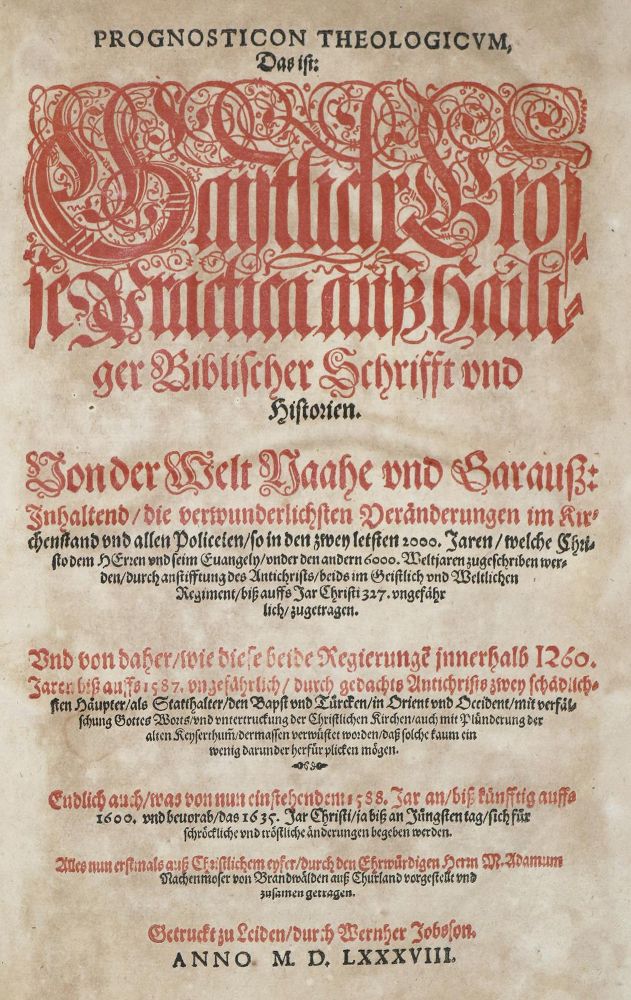 PROGNOSTICON THEOLOGICVM,
Das ist:
Gaistliche Gros-
se Practica auß haili-
ger Biblischer Schrifft vnd
Historien.
Von der Welt Naahe vnd Garauß:
Inhaltend/die verwunderlichsten Veränderungen im Kir-
chenstand vnd allen Policeien/so in den zwey letsten 2000. Jaren/welche Chri-
sto dem HErren vnd seim Euangely/vnder den andern 6000. Weltjaren zugeschriben wer-
den/durch anstifftung des Antichrists/beids im Geistlich vnd Weltlichen
Regiment/biß auffs Jar Christi 327. vngefähr
lich/zugetragen.
Vnd von daher/wie diese beide Regierungē jnnerhalb 1260.
Jaren biß auffs 1587. vngefährlich/durch gedachts Antichrists zwey schädlich-
sten Häupter/als Statthalter/den Bapst vnd Türcken/in Orient vnd Occident/mit verfäl-
schung Gottes Worts/vnd vntertruckung der Christlichen Kirchen/auch mit Plünderung der
alten Keyserthum/dermassen verwüstet worden/daß solche kaum ein
wenig darunder herfür plicken mögen.
Endlich auch/was von nun einstehendem 1588. Jar an/biß künfftig auffs
1600. vnd beuorab/das 1635. Jar Christi/ja biß an Jüngsten tag/sich für
schröckliche vnd tröstliche änderungen begeben werden.
Alles nun erstmals auß Christlichem eyfer/durch den Ehrwürdigen Herrn M. Adamum
Nachenmoser von Brandwälden auß Churland vorgestellt vnd
zusamen getragen.
Getruckt zu Leiden/durch Wernher Jobsson.
ANNO M. D. LXXXVIII.